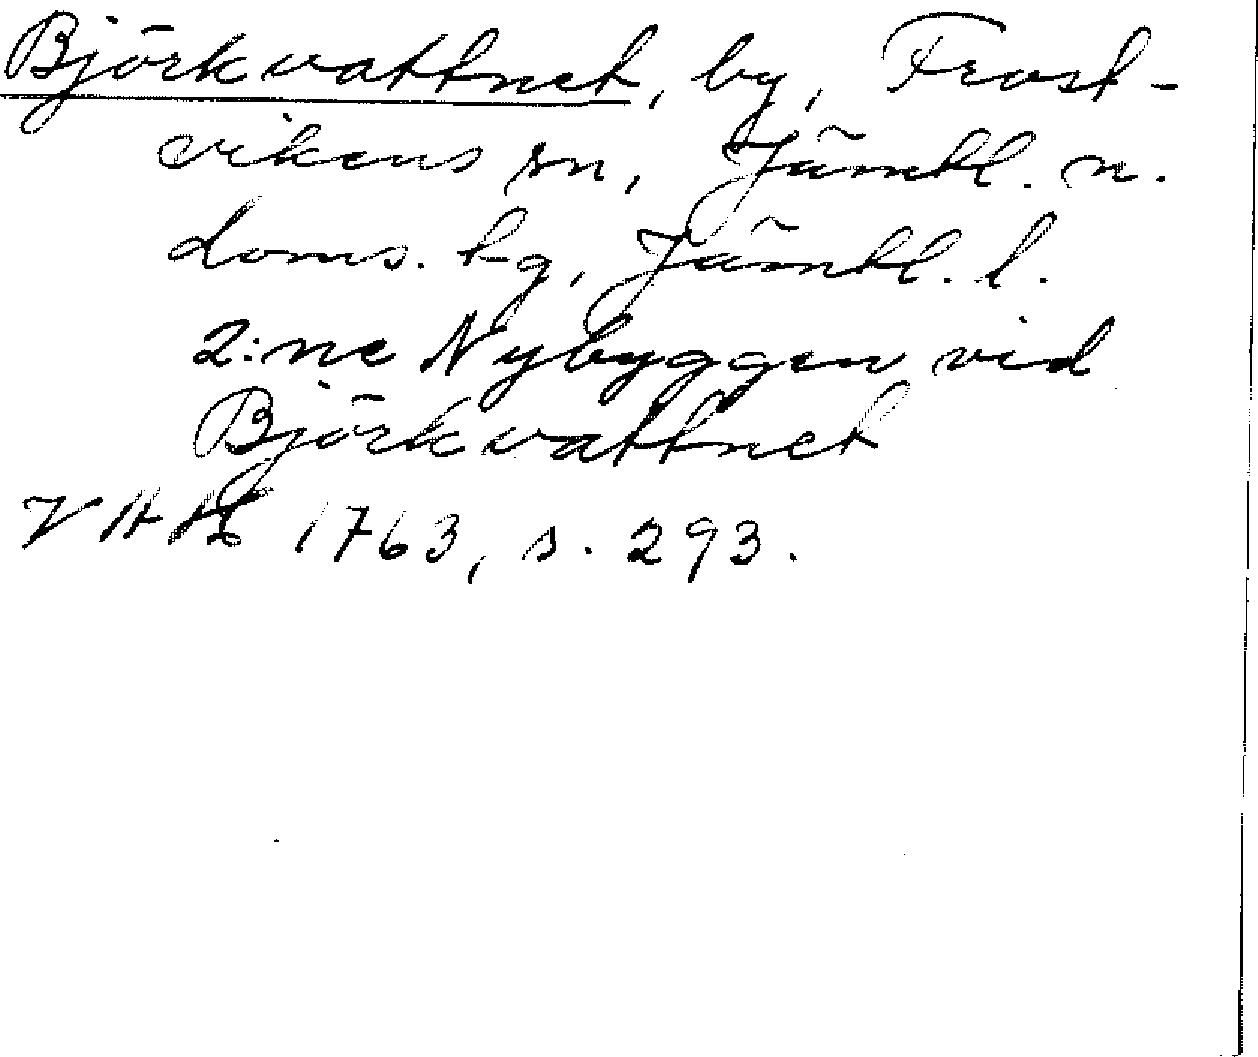 Björkvattnet, by, Frost-
vikens sn, Jämtl. n.
doms. tg, Jämtl. l.
2:ne Nybyggen vid
Björkvattnet
1763, s. 293.